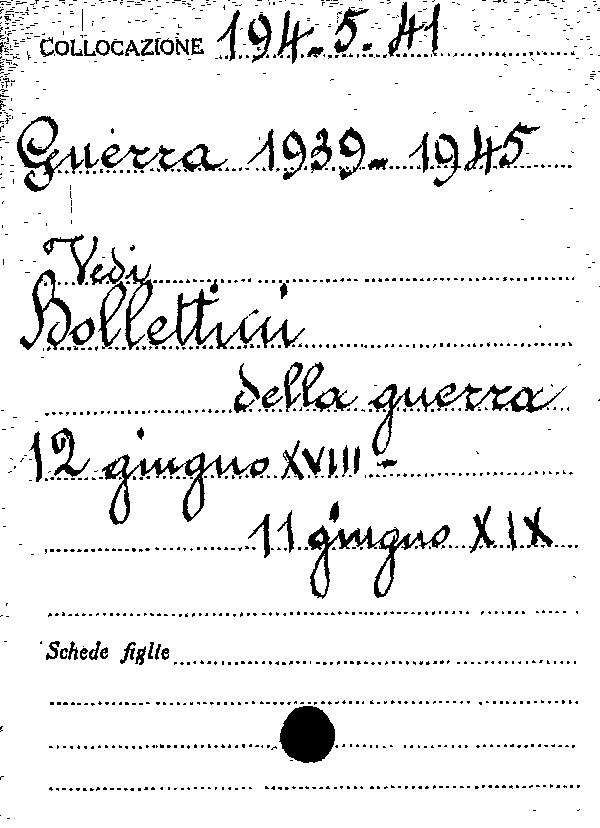 COLLOCAZIONE 194.5.41
Guerra 1939-1945
Vedi
Bollettini
della guerra
12 giugno XVIII-
11 giugno XIX
Schede figlie